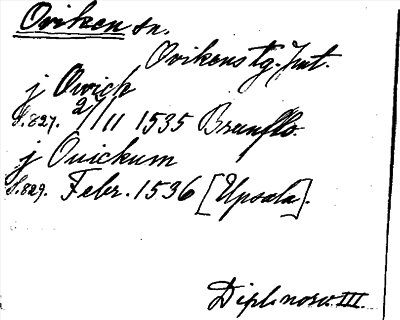 Oviken sn.
Ovikens tg, Jmt.
j Owick
S. 827. 2/11 1535 Brunflo.
j Ouickum
S. 829. Febr. 1536 [Upsala].
Dipl. norv. III.